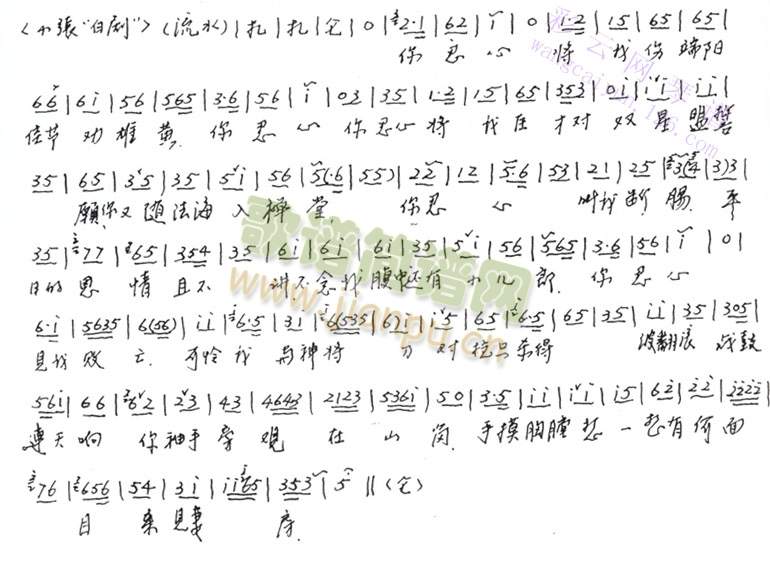 <小張"白剧"> (流水) | 扎 | 扎 | 仓 | 0 | 2·1 | 62 | i | 0 | 1·2 | 15 | 65 | 65 |
你 忍 心 将 我 伤 端阳
66 | 6i | 56 | 565 | 3·6 | 56 | i | 03 | 35 | 1·2 | 15 | 65 | 353 | 0i | ii | ii |
佳节 劝 雄 黄 你 忍 心 你 忍心 将 我 才对 双 星 盟誓
35 | 65 | 35 | 35 | 5i | 56 | 5(·6 | 55) | 22 | 12 | 5·6 | 53 | 21 | 25 | 3(4 | 3)3 |
願你又 随 法海 入 禅 堂 你 忍 心 叫我 断 腸 平
35 | 77 | 65 | 354 | 35 | 6i | 6i | 6i | 35 | 5i | 56 | 565 | 3·6 | 56 | i | 0 |
日的 恩 情 且不 讲 不念我 腹中还有 小 儿 郎 你 忍 心
6·i | 5635 | 6(56) | ii | 6·5 | 3i | 6(535 | 6)i | i5 | 65 | 6·5 | 65 | 35 | ii | 35 | 305 |
見我 败 亡 可怜我 与神将 刀 对 杀得 波翻浪 战鼓
56i | 66 | 62 | 23 | 43 | 4643 | 2123 | 536i | 50 | 3·5 | ii | ii | i5 | 62 | 22 | 2222 |
天响 你 袖手 旁 观 在 山 岗 手摸胸膛 想 一 想 有 何 面
76 | 656 | 54 | 3i | ii65 | 353 | 5 || (仓)
目 来見妻 房
歌谱简谱网
www.jianpu.cn
彩云网